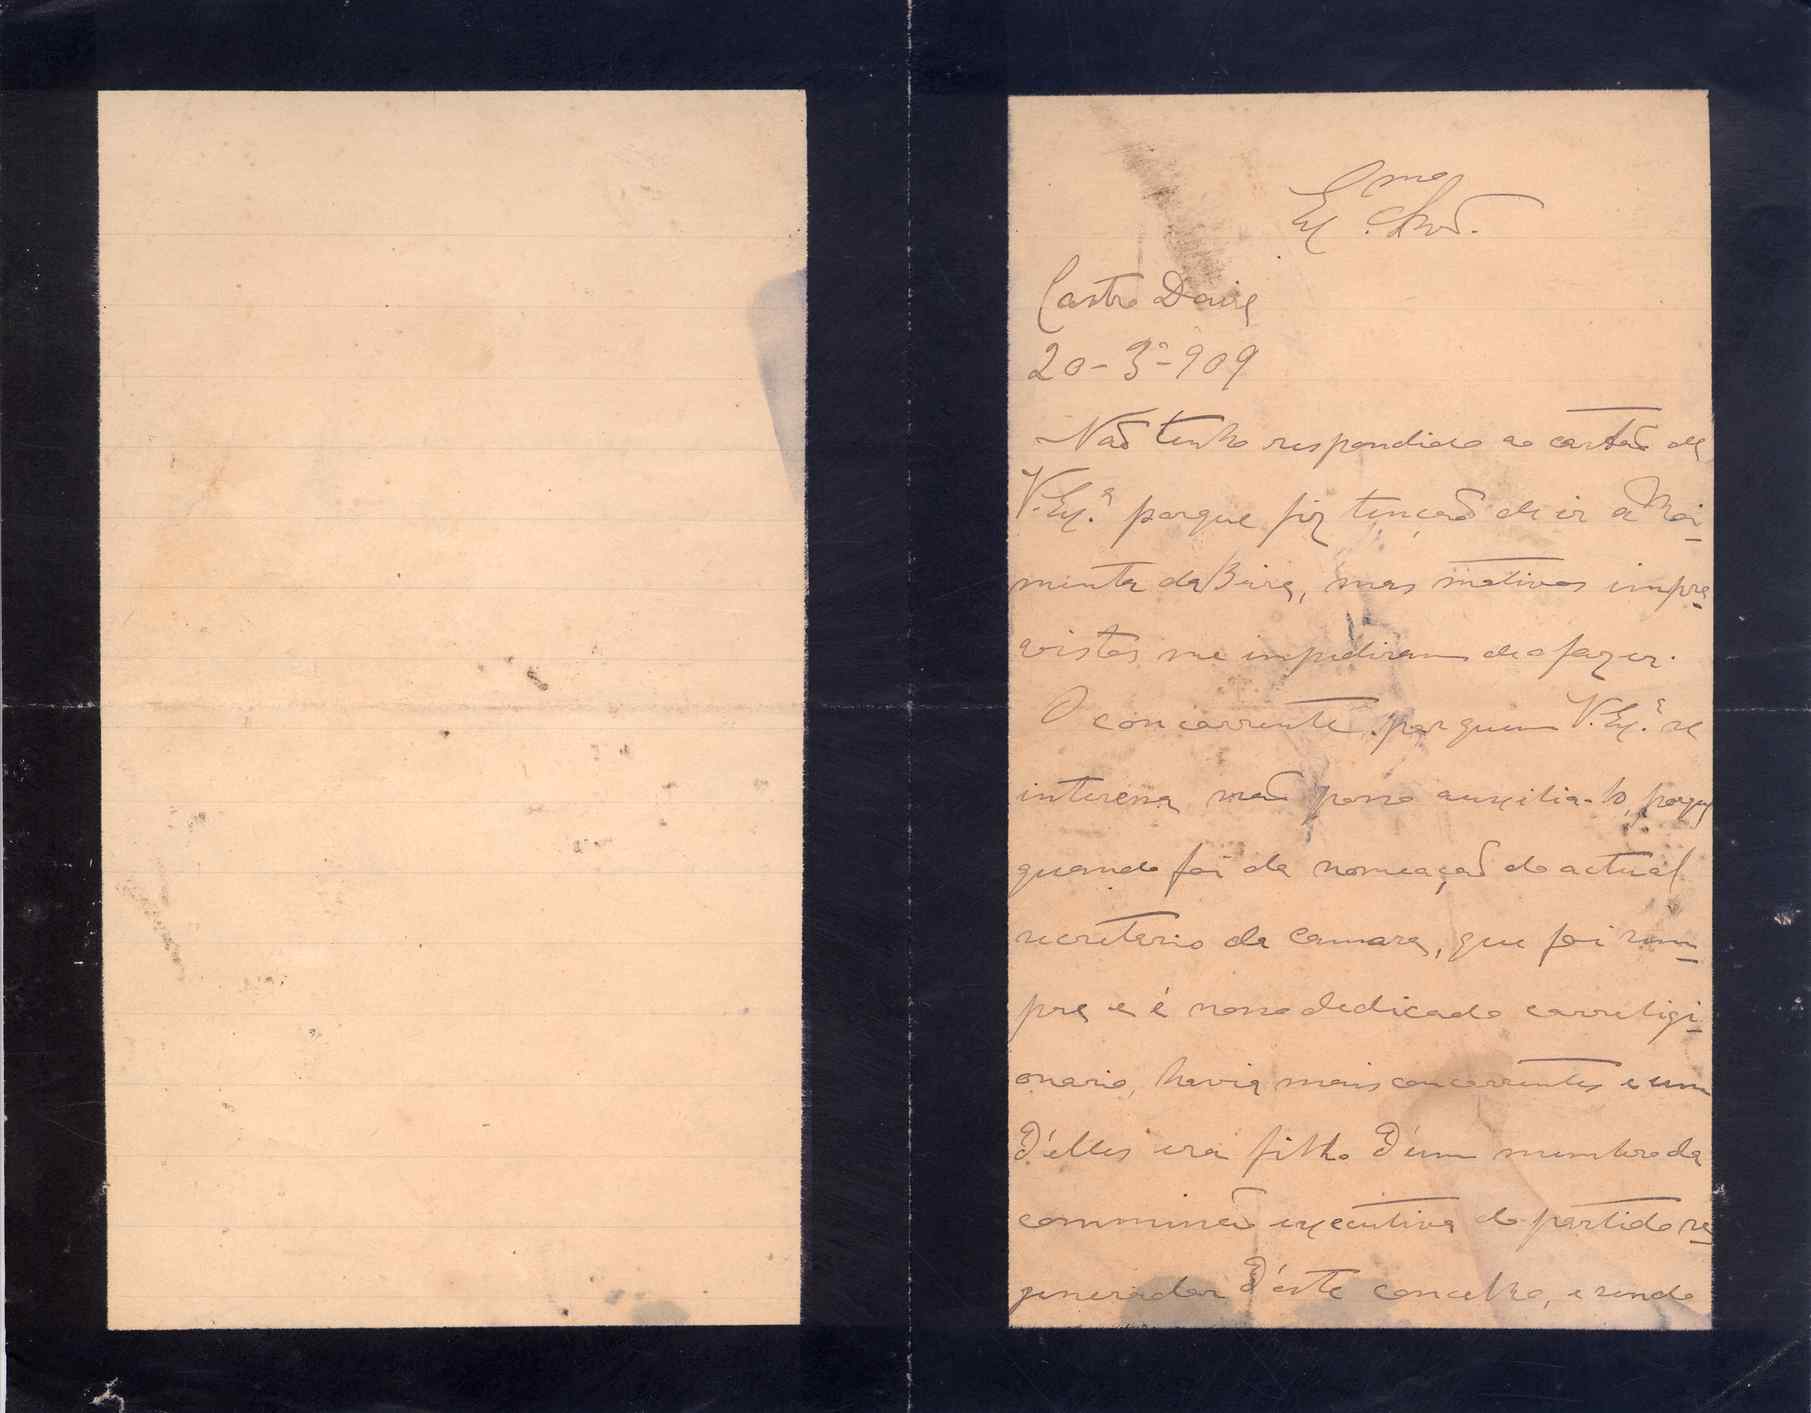 Ex.mo Snr.
Castro Daire
20-3º-909
Não tenho respondido ao cartão de
V. Ex.ª porque fiz tenção de ir a Moi-
menta da Beira, mas motivos impre-
vistos me impediram de o fazer.
O concorrente, por quem V. Ex.ª se
interessa, não posso auxilia-lo, porque
quando foi da nomeação do actual
secretario da camara, que foi sem-
pre e é nosso dedicado correligi-
onario, havia mais concorrentes e um
d'elles era filho d'um membro da
commissão executiva do partido re-
generador d'este concelho, e sendo